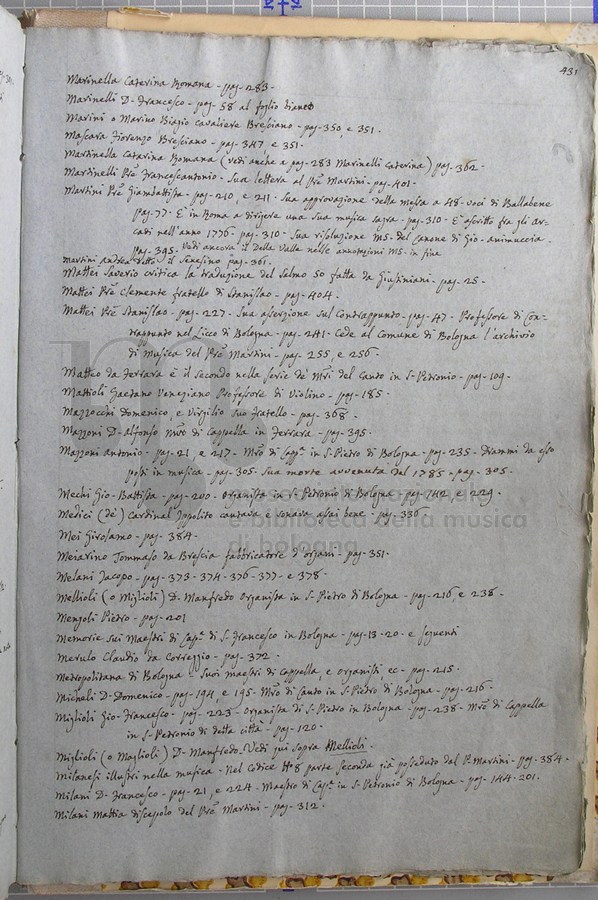 431
Marinella Caterina Romana - pag. 283 -
Marinelli D. Francesco - pag. 58 al foglio bianco
Marini o Marino Biagio Cavaliere Bresciano - pag. 350, e 351.
Mascara Fiorenzo Bresciano - pag. 347, e 351.
Martinella Catarina Romana (vedi anche a pag. 283 Marinelli Caterina) pag. 362 -
Martinelli Prê Francescantonio - Sua lettera al Prê Martini - pag. 401 -
Martini Prê Giambattista - pag. 210, e 211 - Sua approvazione della Messa a 48. voci di Ballabene
pag. 77 - È in Roma a dirigere una sua musica sagra - pag. 310 - È ascritto fra gli Ar-
cadi nell'anno 1776 - pag. 310 - Sua risoluzione MS. del Canone di Gio. Animuccia -
pag. 395 - Vedi ancora il Della Valle nelle annotazioni MS. in fine
Martini Andrea detto il Senesino pag. 361.
Mattei Saverio critica la traduzione del Salmo 50 fatta da Giustiniani - pag. 25 -
Mattei Prê Clemente fratello di Stanislao - pag. 404 -
Mattei Prê Stanislao - pag. 227 - Sua asserzione sul Contrappunto - pag. 47 - Professore di Con-
trappunto nel Liceo di Bologna - pag. 241 - Cede al Comune di Bologna l'archivio
di Musica del Prê Martini - pag. 255, e 256 -
Matteo da Ferrara è il secondo nella serie de' Mri del Canto in S. Petronio - pag. 109 -
Mattioli Gaetano Veneziano Professore di Violino - pag. 185 -
Mazzocchi Domenico, e Virgilio suo fratello - pag. 368 -
Mazzoni D. Alfonso Mro di Cappella in Ferrara - pag. 395 -
Mazzoni Antonio - pag. 21, e 217 - Mro di Capp.ª in S. Pietro di Bologna - pag. 235 - Drammi da esso
posti in musica - pag. 305 - Sua morte avvenuta del 1785 - pag. 305 -
Mechi Gio. Battista - pag. 200 - Organista in S. Petronio di Bologna - pag. 142, e 229 -
Medici (de') Cardinal Ippolito cantava e sonava assai bene - pag. 336 -
Mei Girolamo - pag. 384 -
Meiarino Tommaso da Brescia fabbricatore d'organi - pag. 351 -
Melani Jacopo - pag. 373 - 374 - 376 - 377 - e 378 -
Mellioli (o Miglioli) D. Manfredo Organista in S. Pietro di Bologna - pag. 216, e 238 -
Mengoli Pietro - pag. 201
Memorie sui Maestri di Capp.ª di S. Francesco in Bologna - pag. 13 - 20 - e seguenti
Merulo Claudio da Correggio - pag. 372 -
Metropolitana di Bologna - Suoi maestri di cappella, e organisti, ec - pag. 215 -
Micheli D. Domenico - pag. 194, e 195 - Mro di Canto in S. Pietro di Bologna - pag. 216 -
Miglioli Gio. Francesco - pag. 223 - Organista di S. Pietro in Bologna - pag. 238 - Mro di Cappella
in S. Petronio di detta città - pag. 120 -
Miglioli (o Maglioli) D. Manfredo. Vedi qui sopra Mellioli -
Milanesi illustri nella musica - Nel Codice N° 8 parte seconda già posseduto dal P. Martini - pag. 384 -
Milani D. Francesco - pag. 21, e 224 - Maestro di Capp.ª in S. Petronio di Bologna - pag. 144 - 201 -
Milani Mattia discepolo del Prê Martini - pag. 312 -
e biblioteca della musica
di bologna